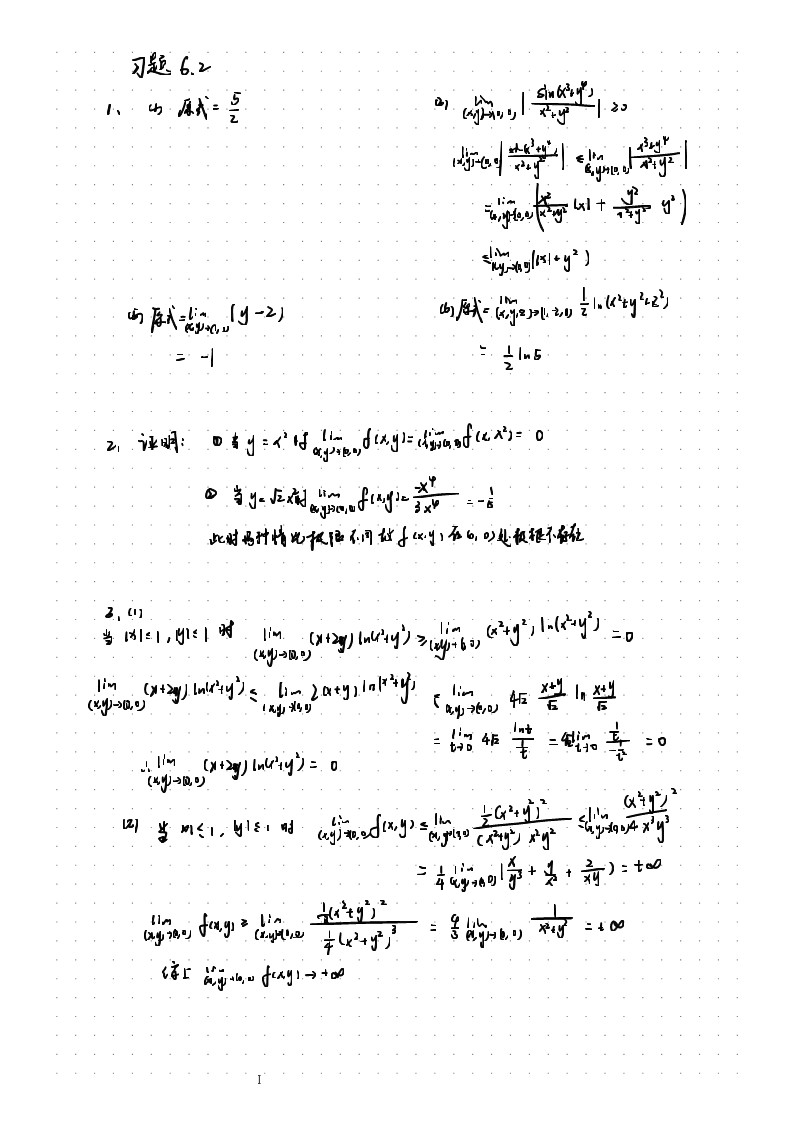 习题 6.2
1、 (1) 原式 = 5/2
(2) lim_{(x,y)→(0,0)} | sin(x³+y⁴) / (x²+y²) | ≥ 0
lim_{(x,y)→(0,0)} | sin(x³+y⁴) / (x²+y²) | ≤ lim_{(x,y)→(0,0)} | (x³+y⁴) / (x²+y²) |
= lim_{(x,y)→(0,0)} ( x²/(x²+y²) |x| + y²/(x²+y²) y² )
≤ lim_{(x,y)→(0,0)} (|x| + y²)
原式 = lim (y-2)
= -1
(6) 原式 = lim_{(x,y,z)→(1,-2,0)} 1/2 ln(x²+y²+z²)
= 1/2 ln5
2、 证明: ① 当 y = x² 时 lim_{(x,y)→(0,0)} f(x,y) = lim_{(x,y)→(0,0)} f(x,x²) = 0
② 当 y = √2 x² 时 lim_{(x,y)→(0,0)} f(x,y) = -x⁴ / 3x⁴ = -1/3
此时两种情况极限不同 故 f(x,y) 在(0,0)处极限不存在
3、(1)
当 |x|≤1, |y|≤1 时 lim_{(x,y)→(0,0)} (x+2y) ln(x²+y²) ≥ lim_{(x,y)→(0,0)} (x²+y²) ln(x²+y²) = 0
lim_{(x,y)→(0,0)} (x+2y) ln(x²+y²) ≤ lim_{(x,y)→(0,0)} 2(x+y) ln(x²+y²)
lim_{(x,y)→(0,0)} 4√2 (x+y)/√2 ln (x+y)/√2
= lim_{t→0} 4√2 lnt / (1/t) = 4√2 lim_{t→0} (1/t) / (-1/t²) = 0
∴ lim_{(x,y)→(0,0)} (x+2y) ln(x²+y²) = 0
(2) 当 |x|≤1, |y|≤1 时 lim_{(x,y)→(0,0)} f(x,y) ≤ lim_{(x,y)→(0,0)} 1/2 (x²+y²)² / (x²+y²) x²y² ≤ lim_{(x,y)→(0,0)} (x²+y²)² / 4x³y³
= 1/4 lim_{(x,y)→(0,0)} ( x/y³ + y/x³ + 2/xy ) = +∞
lim_{(x,y)→(0,0)} f(x,y) ≥ lim_{(x,y)→(0,0)} (x²+y²)² / 1/4 (x²+y²)³ = lim_{(x,y)→(0,0)} 1/(x²+y²) = +∞
综上 lim_{(x,y)→(0,0)} f(x,y) → +∞
I